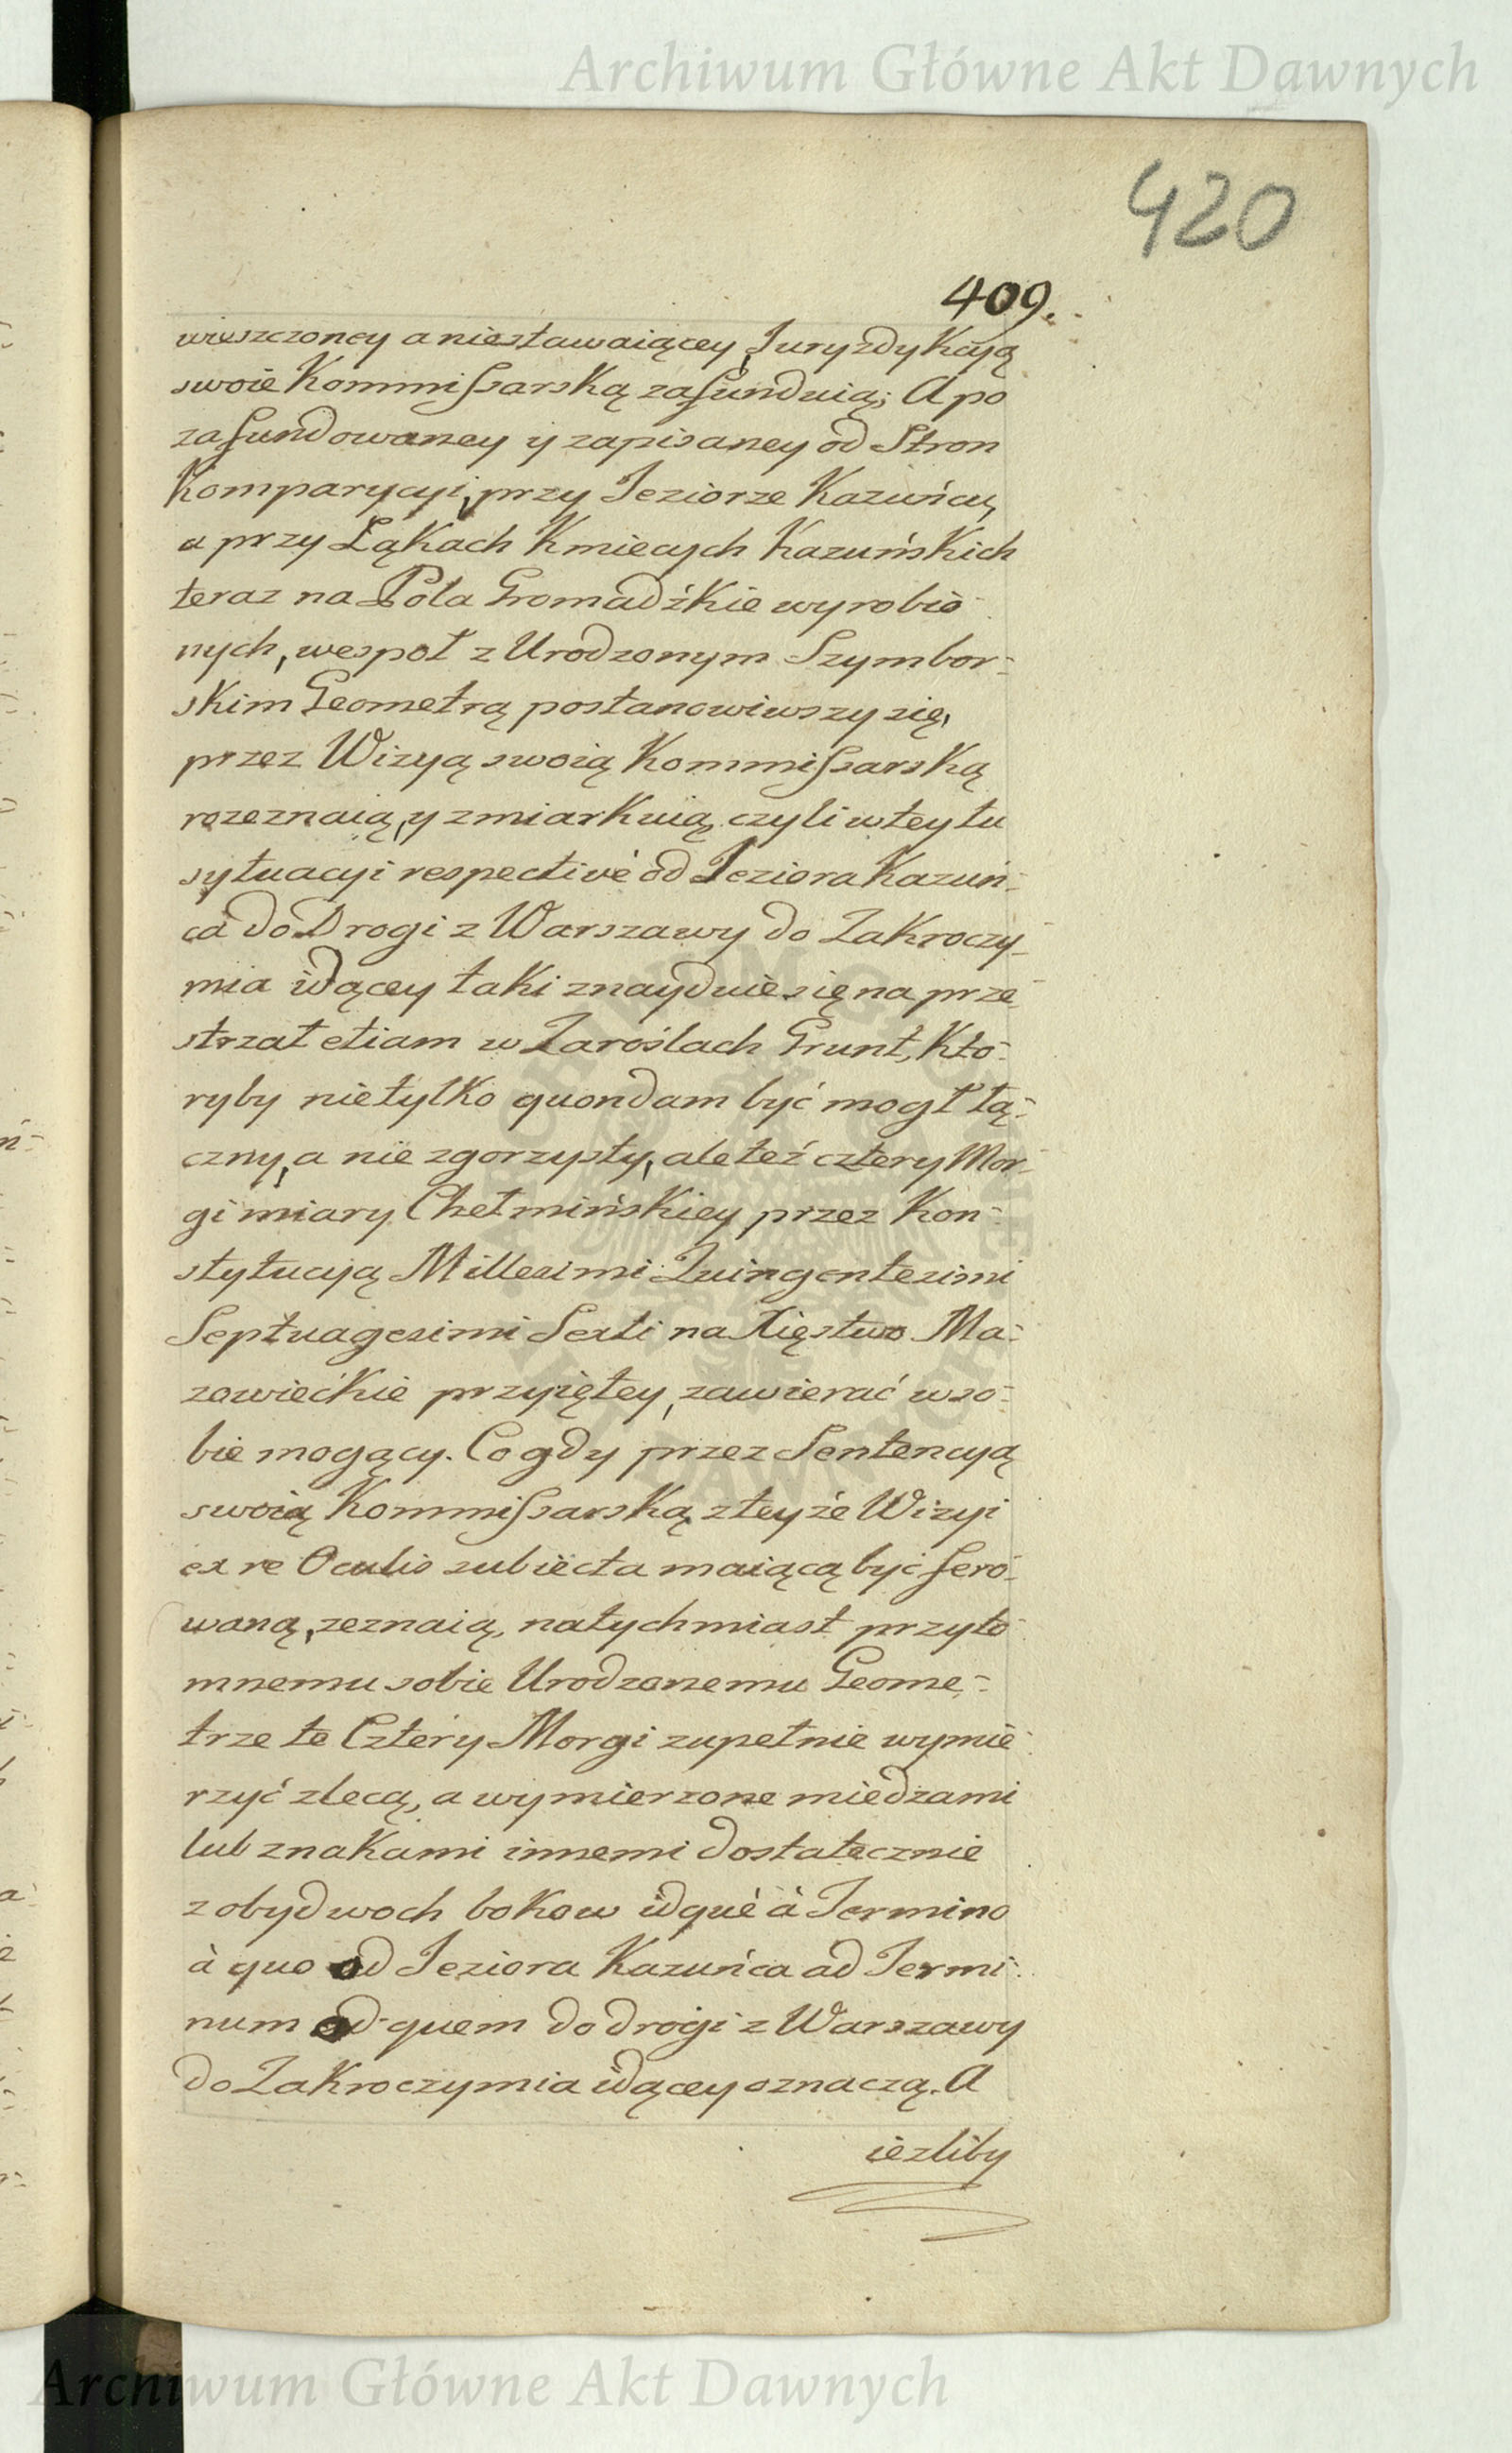 Archiwum Główne Akt Dawnych
420
409.
wieszczoney a niestawaiącey, Juryzdykcyą
swoie Kommissarską zafunduią; A po
zafundowaney y zapisaney od Stron
Komparycyi, przy Jeziorze Kazuńcu,
a przy Łąkach Kmiecych Kazuńskich
teraz na Pola Gromadźkie wyrobio-
nych, wespoł z Urodzonym Szymbor-
skim Geometrą postanowiwszy się,
przez Wizyą swoią Kommissarską
rozeznaią, y zmiarkuią, czyli w tey tu
sytuacyi respectivè od Jeziora Kazuń-
ca do Drogi z Warszawy do Zakroczy-
mia idącey taki znayduie się na prze-
strzał etiam w Zaroślach Grunt, Kto-
ryby nietylko quondam być mogł łą-
czny, a nie zgorzysty, ale też cztery Mor-
gi miary Chełmińskiey przez Kon-
stytucyą Millesimi Quingentesimi
Septuagesimi Sexti na Xięstwo Ma-
zowieckie przyiętey, zawierać w so-
bie mogący. Co gdy przez Sentencyą
swoią Kommissarską z teyże Wizyi
ex re Oculis subiecta maiącą być fero-
waną, zeznaią, natychmiast przyto-
mnemu sobie Urodzonemu Geome-
trze te Cztery Morgi zupełnie wymie-
rzyć zlecą, a wymierzone miedzami
lub znakami innemi dostatecznie
z obydwoch bokow idquè à Termino
à quo od Jeziora Kazuńca ad Termi-
num ad quem do drogi z Warszawy
do Zakroczymia idącey oznaczą. A
iezliby
Archiwum Główne Akt Dawnych